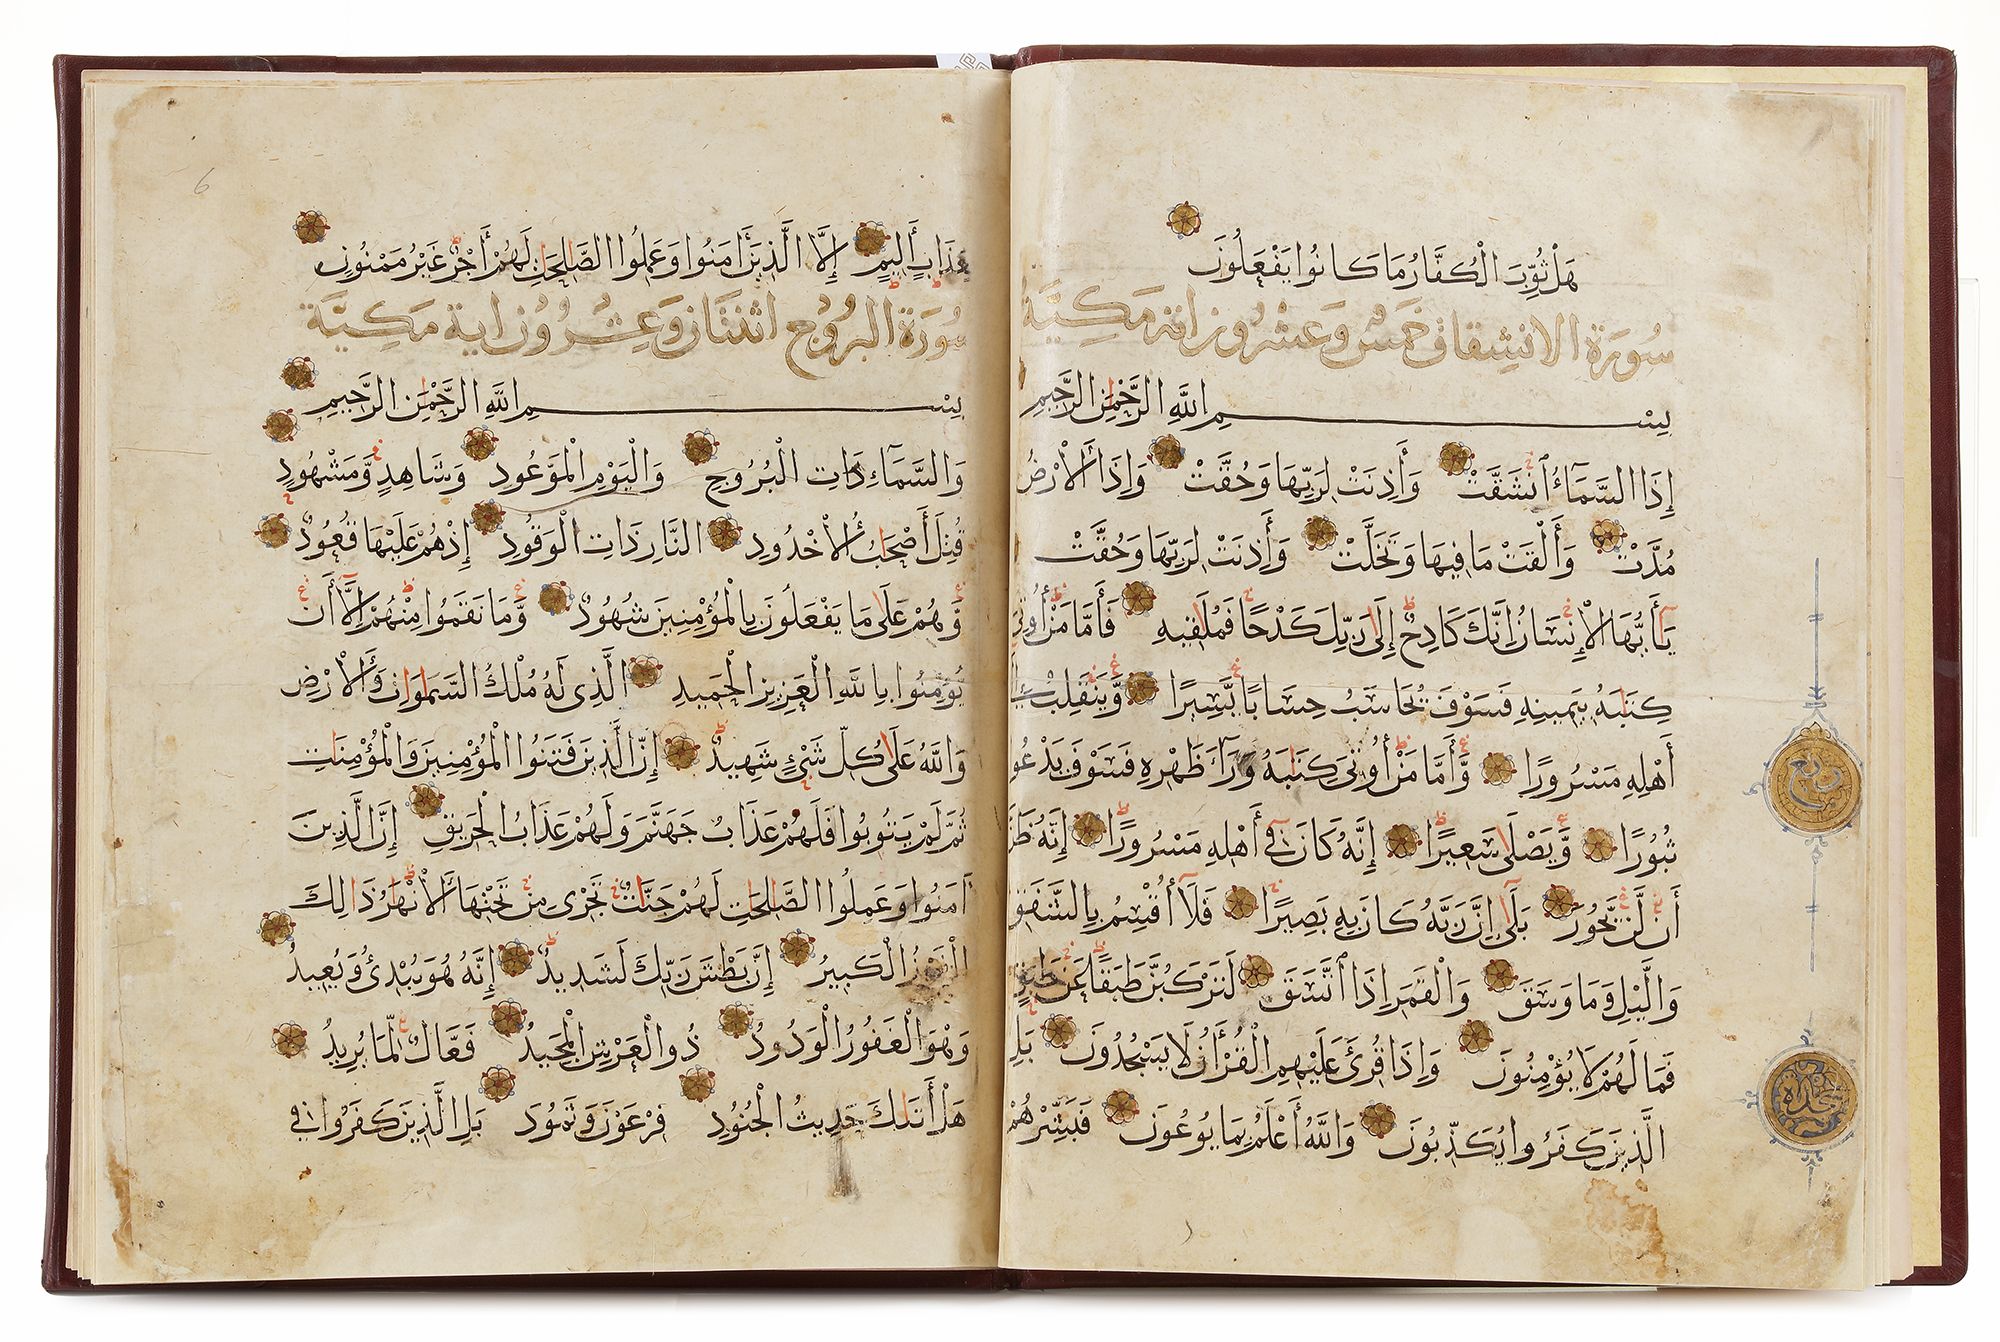 هَلْ ثُوِّبَ الْكُفَّارُ مَا كَانُوا يَفْعَلُونَ
سُورَةُ الانشِقَاقِ خَمْسٌ وَعِشْرُونَ اية مَكِيَّةٌ
بِسْمِ اللَّهِ الرَّحْمٰنِ الرَّحِيمِ
إِذَا السَّمَآءُ ٱنْشَقَّتْ وَأَذِنَتْ لِرَبِّهَا وَحُقَّتْ وَإِذَا ٱلْأَرْضُ
مُدَّتْ وَأَلْقَتْ مَا فِيهَا وَتَخَلَّتْ وَأَذِنَتْ لِرَبِّهَا وَحُقَّتْ
يَآأَيُّهَا الْإِنسَانُ إِنَّكَ كَادِحٌ إِلَىٰ رَبِّكَ كَدْحًا فَمُلَاقِيهِ فَأَمَّا مَنْ أُوتِىَ
كِتَابَهُ بِيَمِينِهِ فَسَوْفَ يُحَاسَبُ حِسَابًا يَسِيرًا وَيَنْقَلِبُ إِلَىٰ
أَهْلِهِ مَسْرُورًا وَأَمَّا مَنْ أُوتِىَ كِتَابَهُ وَرَآءَ ظَهْرِهِ فَسَوْفَ يَدْعُو
ثُبُورًا وَيَصْلَىٰ سَعِيرًا إِنَّهُ كَانَ فِىٓ أَهْلِهِ مَسْرُورًا إِنَّهُ ظَنَّ
أَن لَّنْ يَحُورَ بَلَىٰٓ إِنَّ رَبَّهُ كَانَ بِهِ بَصِيرًا فَلَآ أُقْسِمُ بِالشَّفَقِ
وَالَّيْلِ وَمَا وَسَقَ وَالْقَمَرِ إِذَا ٱتَّسَقَ لَتَرْكَبُنَّ طَبَقًا عَنْ طَبَقٍ
فَمَا لَهُمْ لَا يُؤْمِنُونَ وَإِذَا قُرِئَ عَلَيْهِمُ الْقُرْآنُ لَا يَسْجُدُونَ بَلِ
الَّذِينَ كَفَرُوا يُكَذِّبُونَ وَاللَّهُ أَعْلَمُ بِمَا يُوعُونَ فَبَشِّرْهُمْ
ربع
سجدة
بِعَذَابٍ أَلِيمٍ إِلَّا الَّذِينَ آمَنُوا وَعَمِلُوا الصَّالِحَاتِ لَهُمْ أَجْرٌ غَيْرُ مَمْنُونٍ
سُورَةُ الْبُرُوجِ اثنتان وَعِشْرُونَ اية مَكِيَّةٌ
بِسْمِ اللَّهِ الرَّحْمٰنِ الرَّحِيمِ
وَالسَّمَآءِ ذَاتِ الْبُرُوجِ وَالْيَوْمِ الْمَوْعُودِ وَشَاهِدٍ وَّمَشْهُودٍ
قُتِلَ أَصْحَابُ ٱلْأُخْدُودِ النَّارِ ذَاتِ الْوَقُودِ إِذْ هُمْ عَلَيْهَا قُعُودٌ
وَّهُمْ عَلَىٰ مَا يَفْعَلُونَ بِالْمُؤْمِنِينَ شُهُودٌ وَّمَا نَقَمُوا مِنْهُمْ إِلَّآ أَنْ
يُؤْمِنُوا بِاللَّهِ الْعَزِيزِ الْحَمِيدِ الَّذِى لَهُ مُلْكُ السَّمٰوَاتِ وَٱلْأَرْضِ
وَاللَّهُ عَلَىٰ كُلِّ شَىْءٍ شَهِيدٌ إِنَّ الَّذِينَ فَتَنُوا الْمُؤْمِنِينَ وَالْمُؤْمِنَاتِ
ثُمَّ لَمْ يَتُوبُوا فَلَهُمْ عَذَابُ جَهَنَّمَ وَلَهُمْ عَذَابُ الْحَرِيقِ إِنَّ الَّذِينَ
آمَنُوا وَعَمِلُوا الصَّالِحَاتِ لَهُمْ جَنَّاتٌ تَجْرِى مِنْ تَحْتِهَا ٱلْأَنْهَارُ ذَالِكَ
الْفَوْزُ الْكَبِيرُ إِنَّ بَطْشَ رَبِّكَ لَشَدِيدٌ إِنَّهُ هُوَ يُبْدِئُ وَيُعِيدُ
وَهُوَ الْغَفُورُ الْوَدُودُ ذُو الْعَرْشِ الْمَجِيدُ فَعَّالٌ لِّمَا يُرِيدُ
هَلْ أَتَاكَ حَدِيثُ الْجُنُودِ فِرْعَوْنَ وَثَمُودَ بَلِ الَّذِينَ كَفَرُوا فِى
6